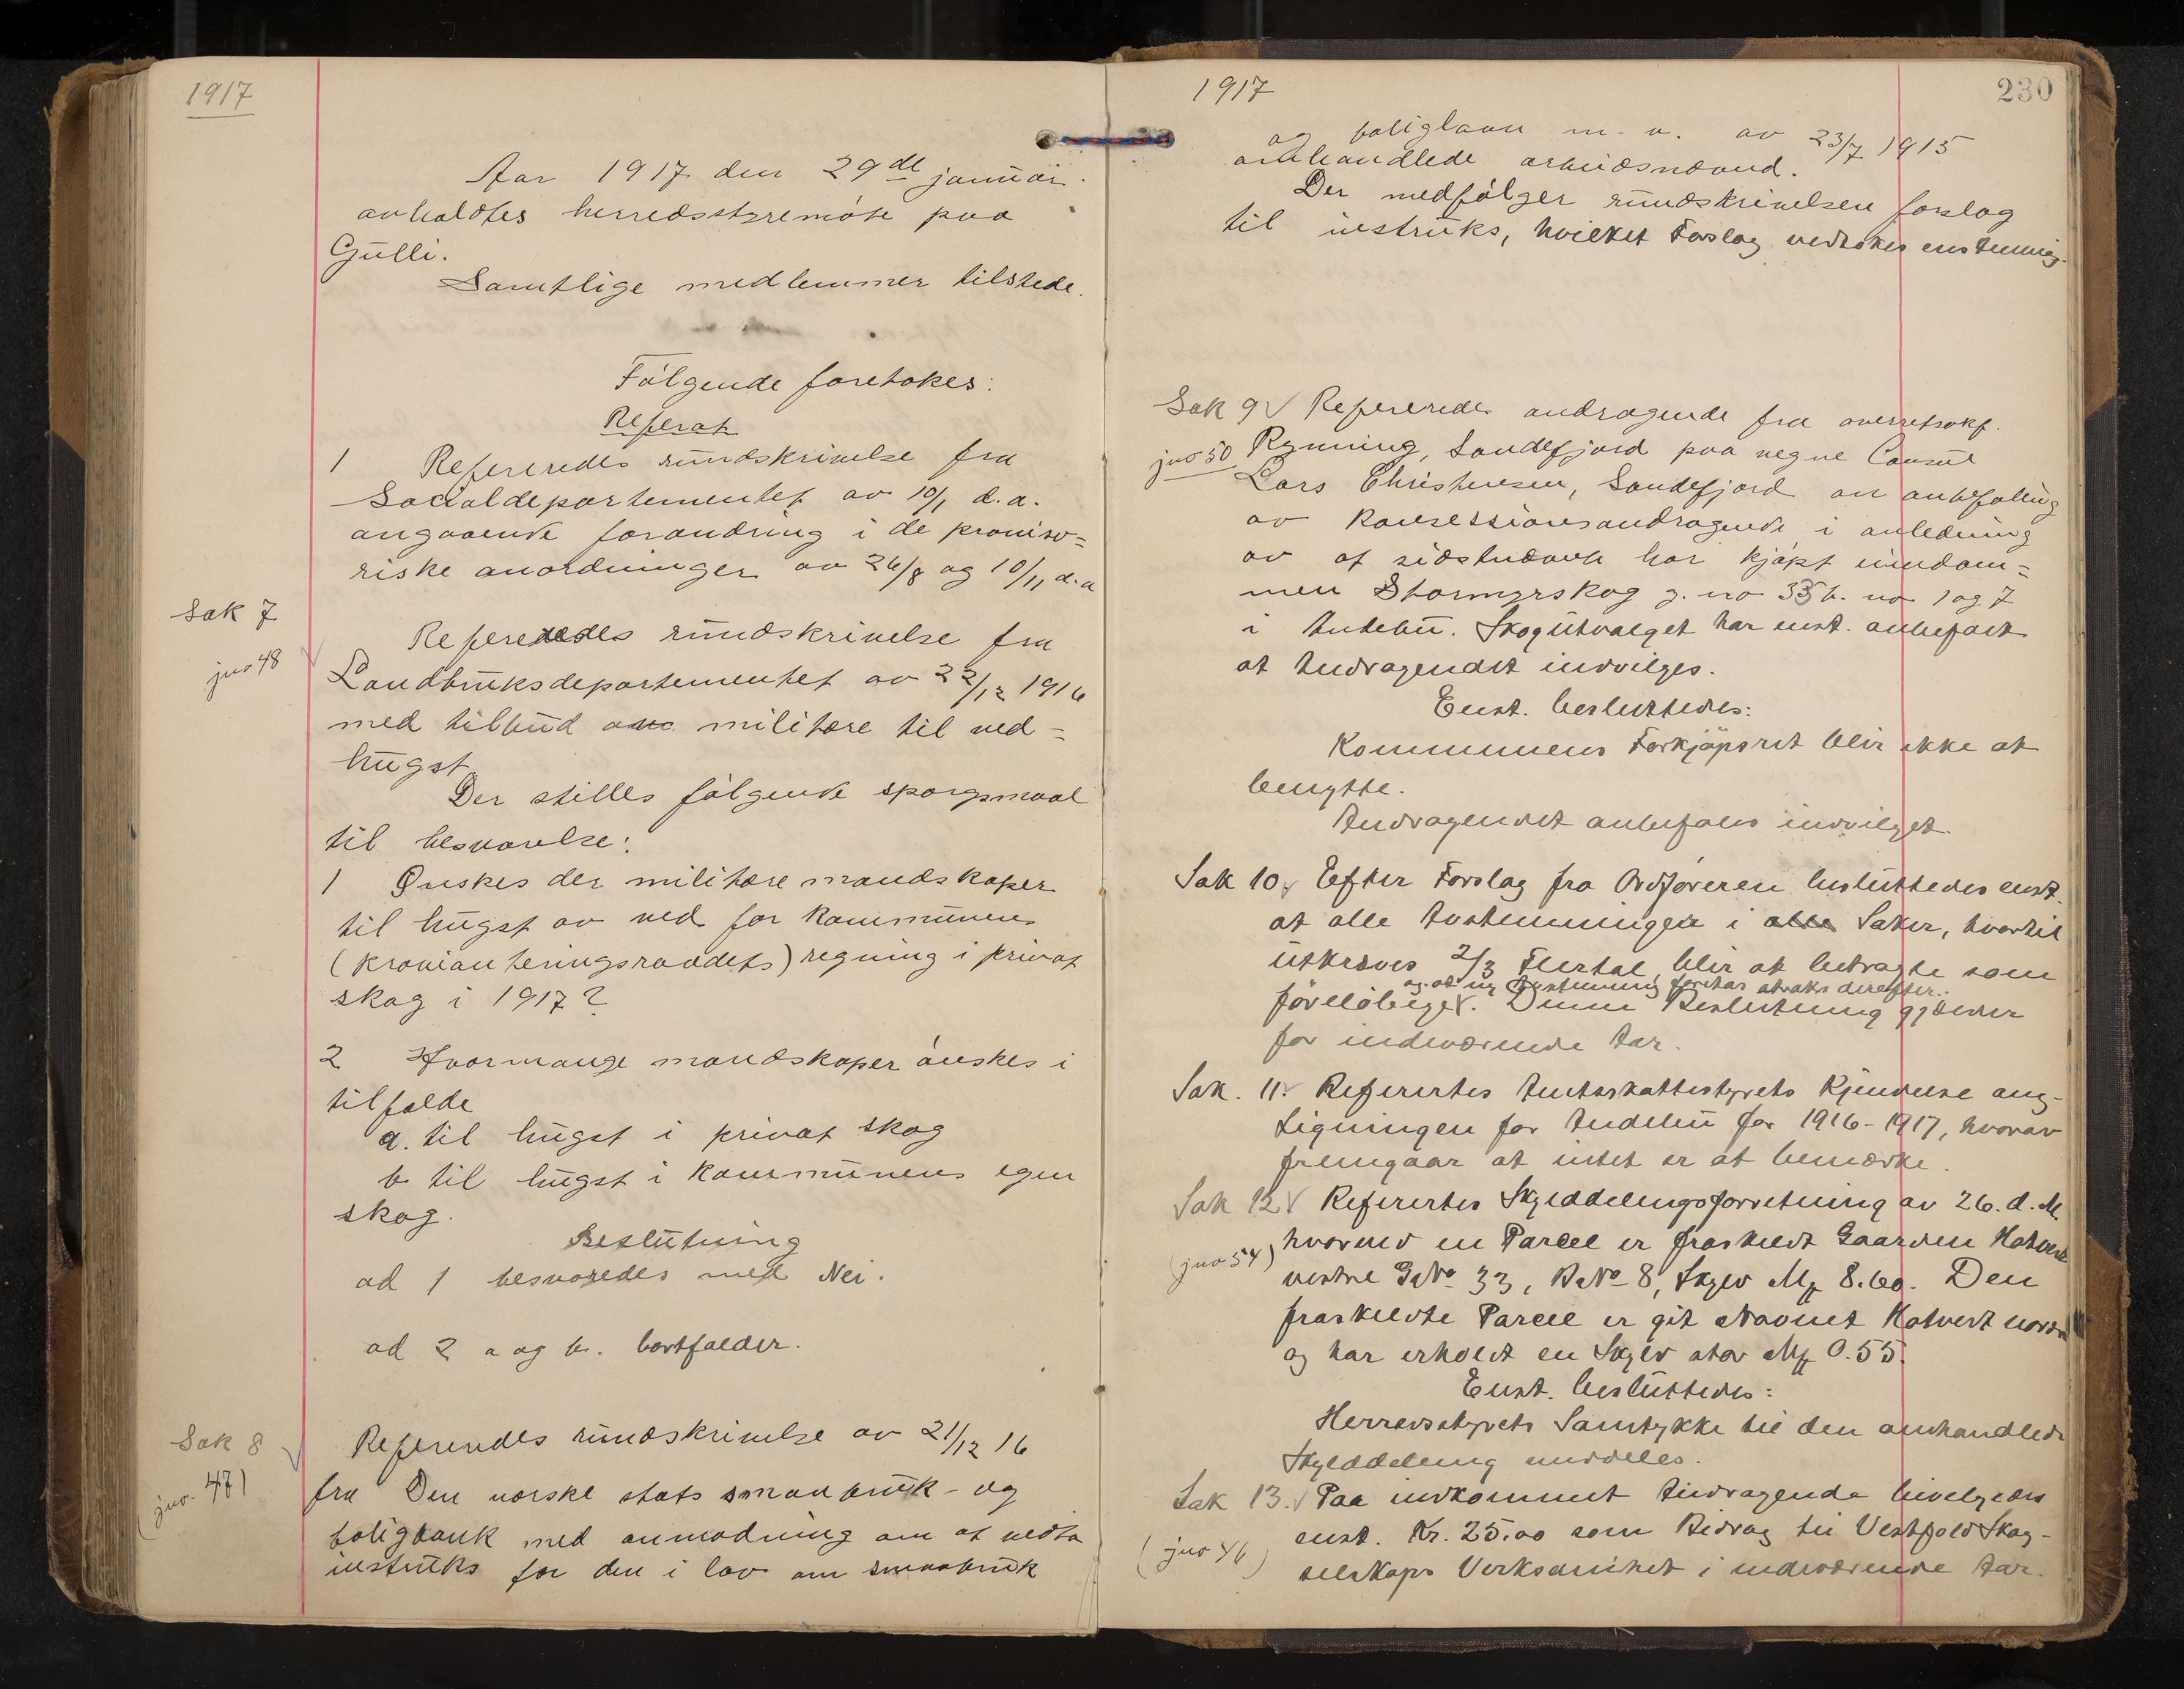 1917
Aar 1917 den 29de januar
avholdtes herredsstyremöte paa
Gulli.
Samtlige medlemmer tilstede.
Fölgende foretokes:
Referat
1 Refereredes rundskrivelse fra
Socialdepartementet av 10/1 d.a.
angaaende forandring i de proviso=
riske anordninger av 26/8 og 10/11 d.a
Sak 7
jno 48
Refereredes rundskrivelse fra
Landbruksdepartementet av 22/12 1916
med tilbud av militære til ved=
hugst
Der stilles fölgende sporgsmaal
til besvarelse:
1 Ønskes der militære mandskaper
til hugst av ved for kommunens
(provianteringsraadets) regning i privat
skog i 1917?
2 Hvormange mandskaper önskes i
tilfælde
a. til hugst i privat skog
b til hugst i kommunens egen
skog.
Beslutning
ad 1 besvaredes med Nei.
ad 2 a og b. bortfalder.
Sak 8
(jno. 47)
Refereredes rundskrivelse av 21/12 16
fra Den norske stats smaabruk- og
boligbank med anmodning om at vedta
instruks for den i lov om smaabruk
1917
230
og boliglaan m.v. av 23/7 1915
omhandlede arbeidsnævnd.
Der medfölger rundskrivelsen forslag
til instruks, hvilket Forslag vedtokes enstemmig.
Sak 9 Refereredes andragende fra overretssakf.
jno 50 Rynning, Sandefjord paa vegne Consul
Lars Christensen, Sandefjord om anbefaling
av konsessionsandragende i anledning
av at sidstnævnte har kjöpt eiendom=
men Stormyrskog g. no 35 b. no 1 og 7
i Andebu. Skogutvalget har enst. anbefalt
at Andragendet indvilges.
Enst. besluttedes:
Kommunens Forkjöpsret blir ikke at
benytte.
Andragendet anbefales indvilget.
Sak 10. Efter Forslag fra Ordföreren besluttedes enst.
at alle Avstemninger i alle Saker, hvortil
utkræves 2/3 Flertal, blir at betragte som
og at ny Avstemning foretas straks derefter.
foreløbige. Denne Beslutning gjælder
for indeværende Aar.
Sak. 11. Referertes Amtsskattestyrets Kjendelse ang.
Ligningen for Andebu for 1916-1917, hvorav
fremgaar at intet er at bemærke.
Sak 12 Referertes Skylddelingsforretning av 26. d.M.
(jno 54) hvorved en Parcel er fraskildt Gaarden Hotvedt
vestre GNo 33, BNo 8, Skyld Mk 8.60. Den
fraskildte Parcel er git Navnet Hotvedt nordre
og har erholdt en Skyld stor Mk 0.55.
Enst. besluttedes:
Herredsstyrets Samtykke til den omhandlede
Skylddeling meddeles.
Sak 13. Paa indkommet Andragende bivilgedes
(jno 46) enst. Kr. 25.00 som Bidrag til Vestfold Skog-
selskaps Verksomhet i indeværende Aar.